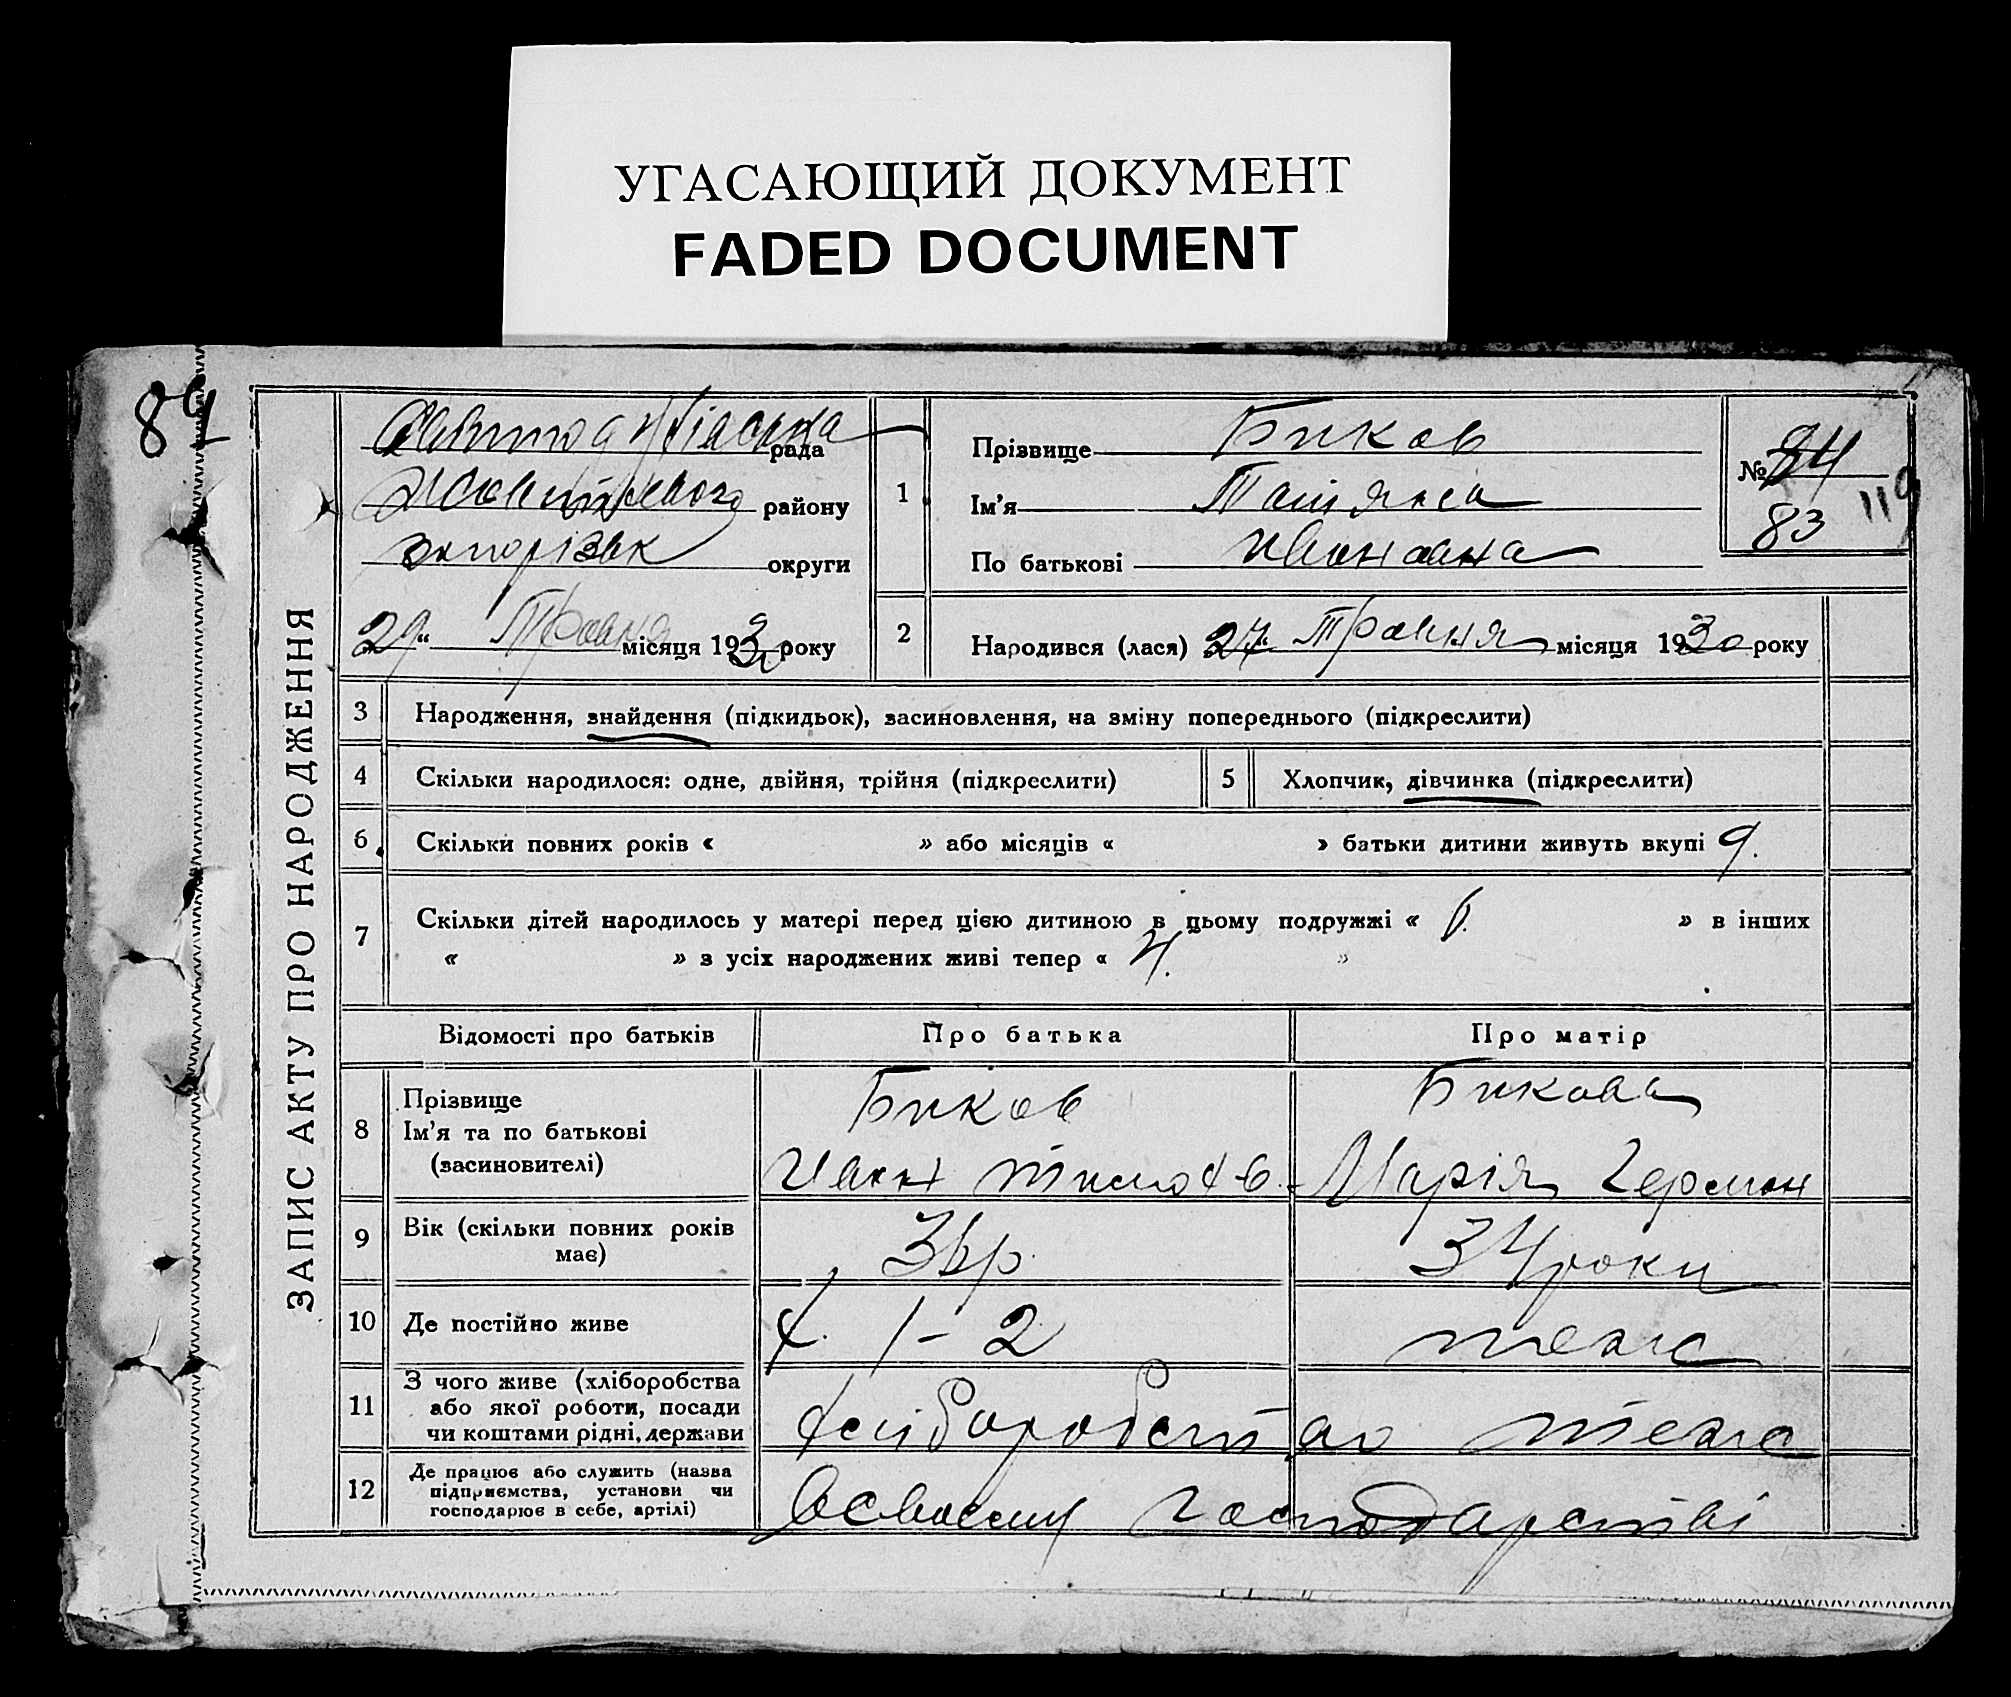 УГАСАЮЩИЙ ДОКУМЕНТ
FADED DOCUMENT
84
ЗАПИС АКТУ ПРО НАРОДЖЕННЯ
рада
району
Запорізьк округи
29 “ Травня місяця 1930 року
1
Прізвище Биков
Ім’я Татяна
По батькові Ивановна
№ 84
83
119
2 Народився (лася) 27 “ Травня місяця 1930 року
3 Народження, знайдення (підкидьок), засиновлення, на зміну попереднього (підкреслити)
4 Скільки народилося: одне, двійня, трійня (підкреслити)
5 Хлопчик, дівчинка (підкреслити)
6 Скільки повних років « » або місяців « » батьки дитини живуть вкупі 9.
7 Скільки дітей народилось у матері перед цією дитиною в цьому подружжі « 6. » в інших
« » з усіх народжених живі тепер « 4. »
Відомості про батьків Про батька Про матір
8 Прізвище
Ім’я та по батькові
(засиновителі)
Биков
Иван Тимоф-в.
Бикова
Марія Герман
9 Вік (скільки повних років
має)
36р.
34 роки
10 Де постійно живе
х. 1-2
теж
11 З чого живе (хліборобства
або якої роботи, посади
чи коштами рідні, держави
хліборобство теж
12 Де працює або служить (назва
підприємства, установи чи
господарює в себе, артілі)
в своєму господарстві